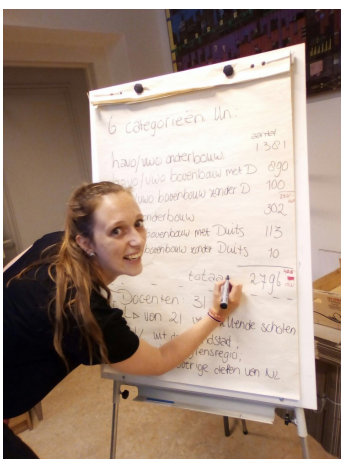 6 categorieën lln:
aantal
havo/vwo onderbouw 1.381
havo/vwo bovenbouw met D 890
vwo bovenbouw zonder D 100
onderbouw 302
bovenbouw met Duits 113
bovenbouw zonder Duits 10
totaal 2796
Docenten: 31
van 21 scholen
uit de
regio,
overige delen van NL